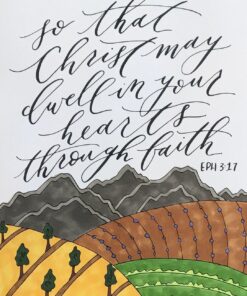 so that
Christ may
dwell in your
hearts
through faith
EPH 3:17